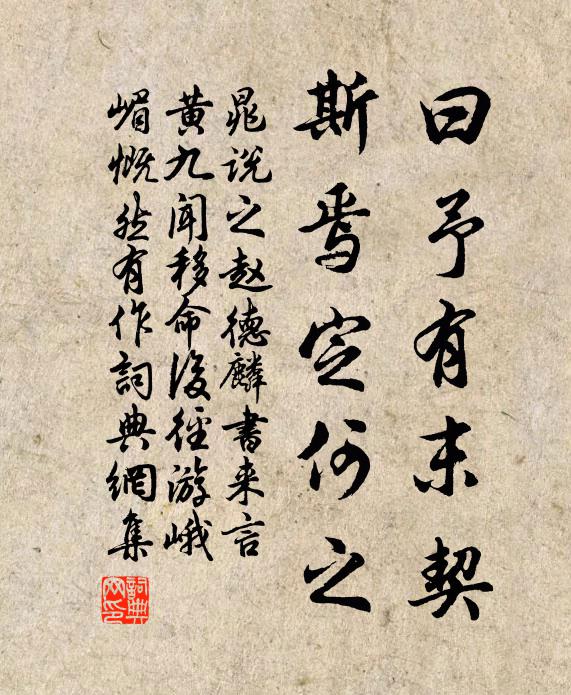 曰予有末契
斯焉定何之
晁说之赵德麟書来言
黄九闻移命後徑游峨
嵋慨然有作詞典網集
詞典
网印